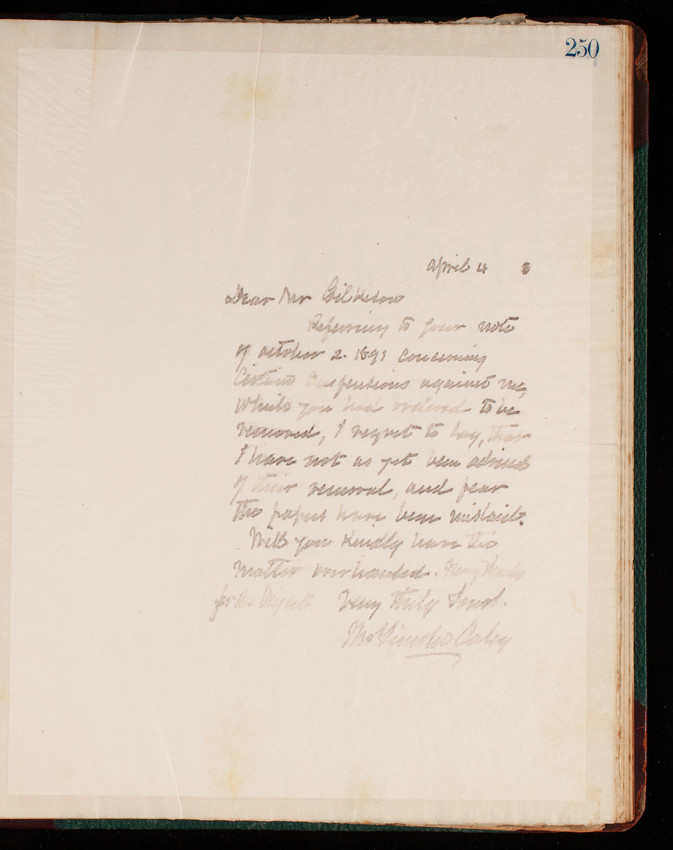 250
April 4
Dear Mr
Referring to your note
of October 2. 1891 concerning
Certain suspensions against me,
which you had ordered to be
removed, I regret to say, that
I have not as yet been advised
of their removal, and fear
the papers have been mislaid.
Will you kindly have this
matter overhauled. Many thanks
for the Very truly Yours.
Thos Lincoln Casey